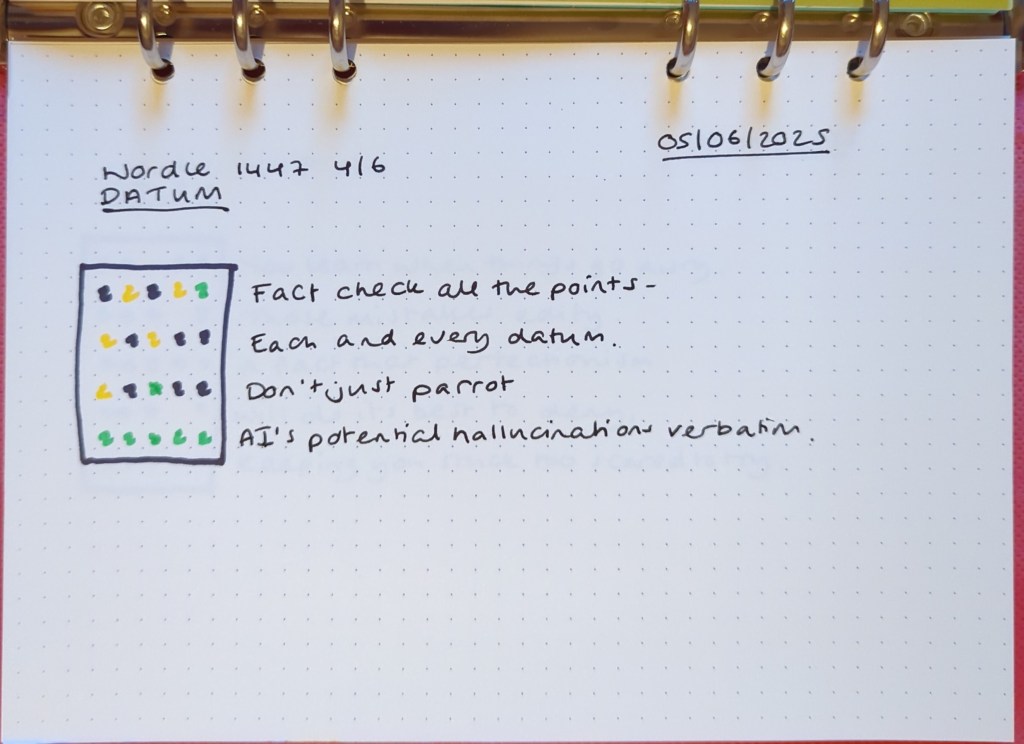 05/06/2025
Wordle 1447 4/6
DATUM
Fact check all the points-
Each and every datum.
Don't just parrot
AI's potential hallucinations verbatim.